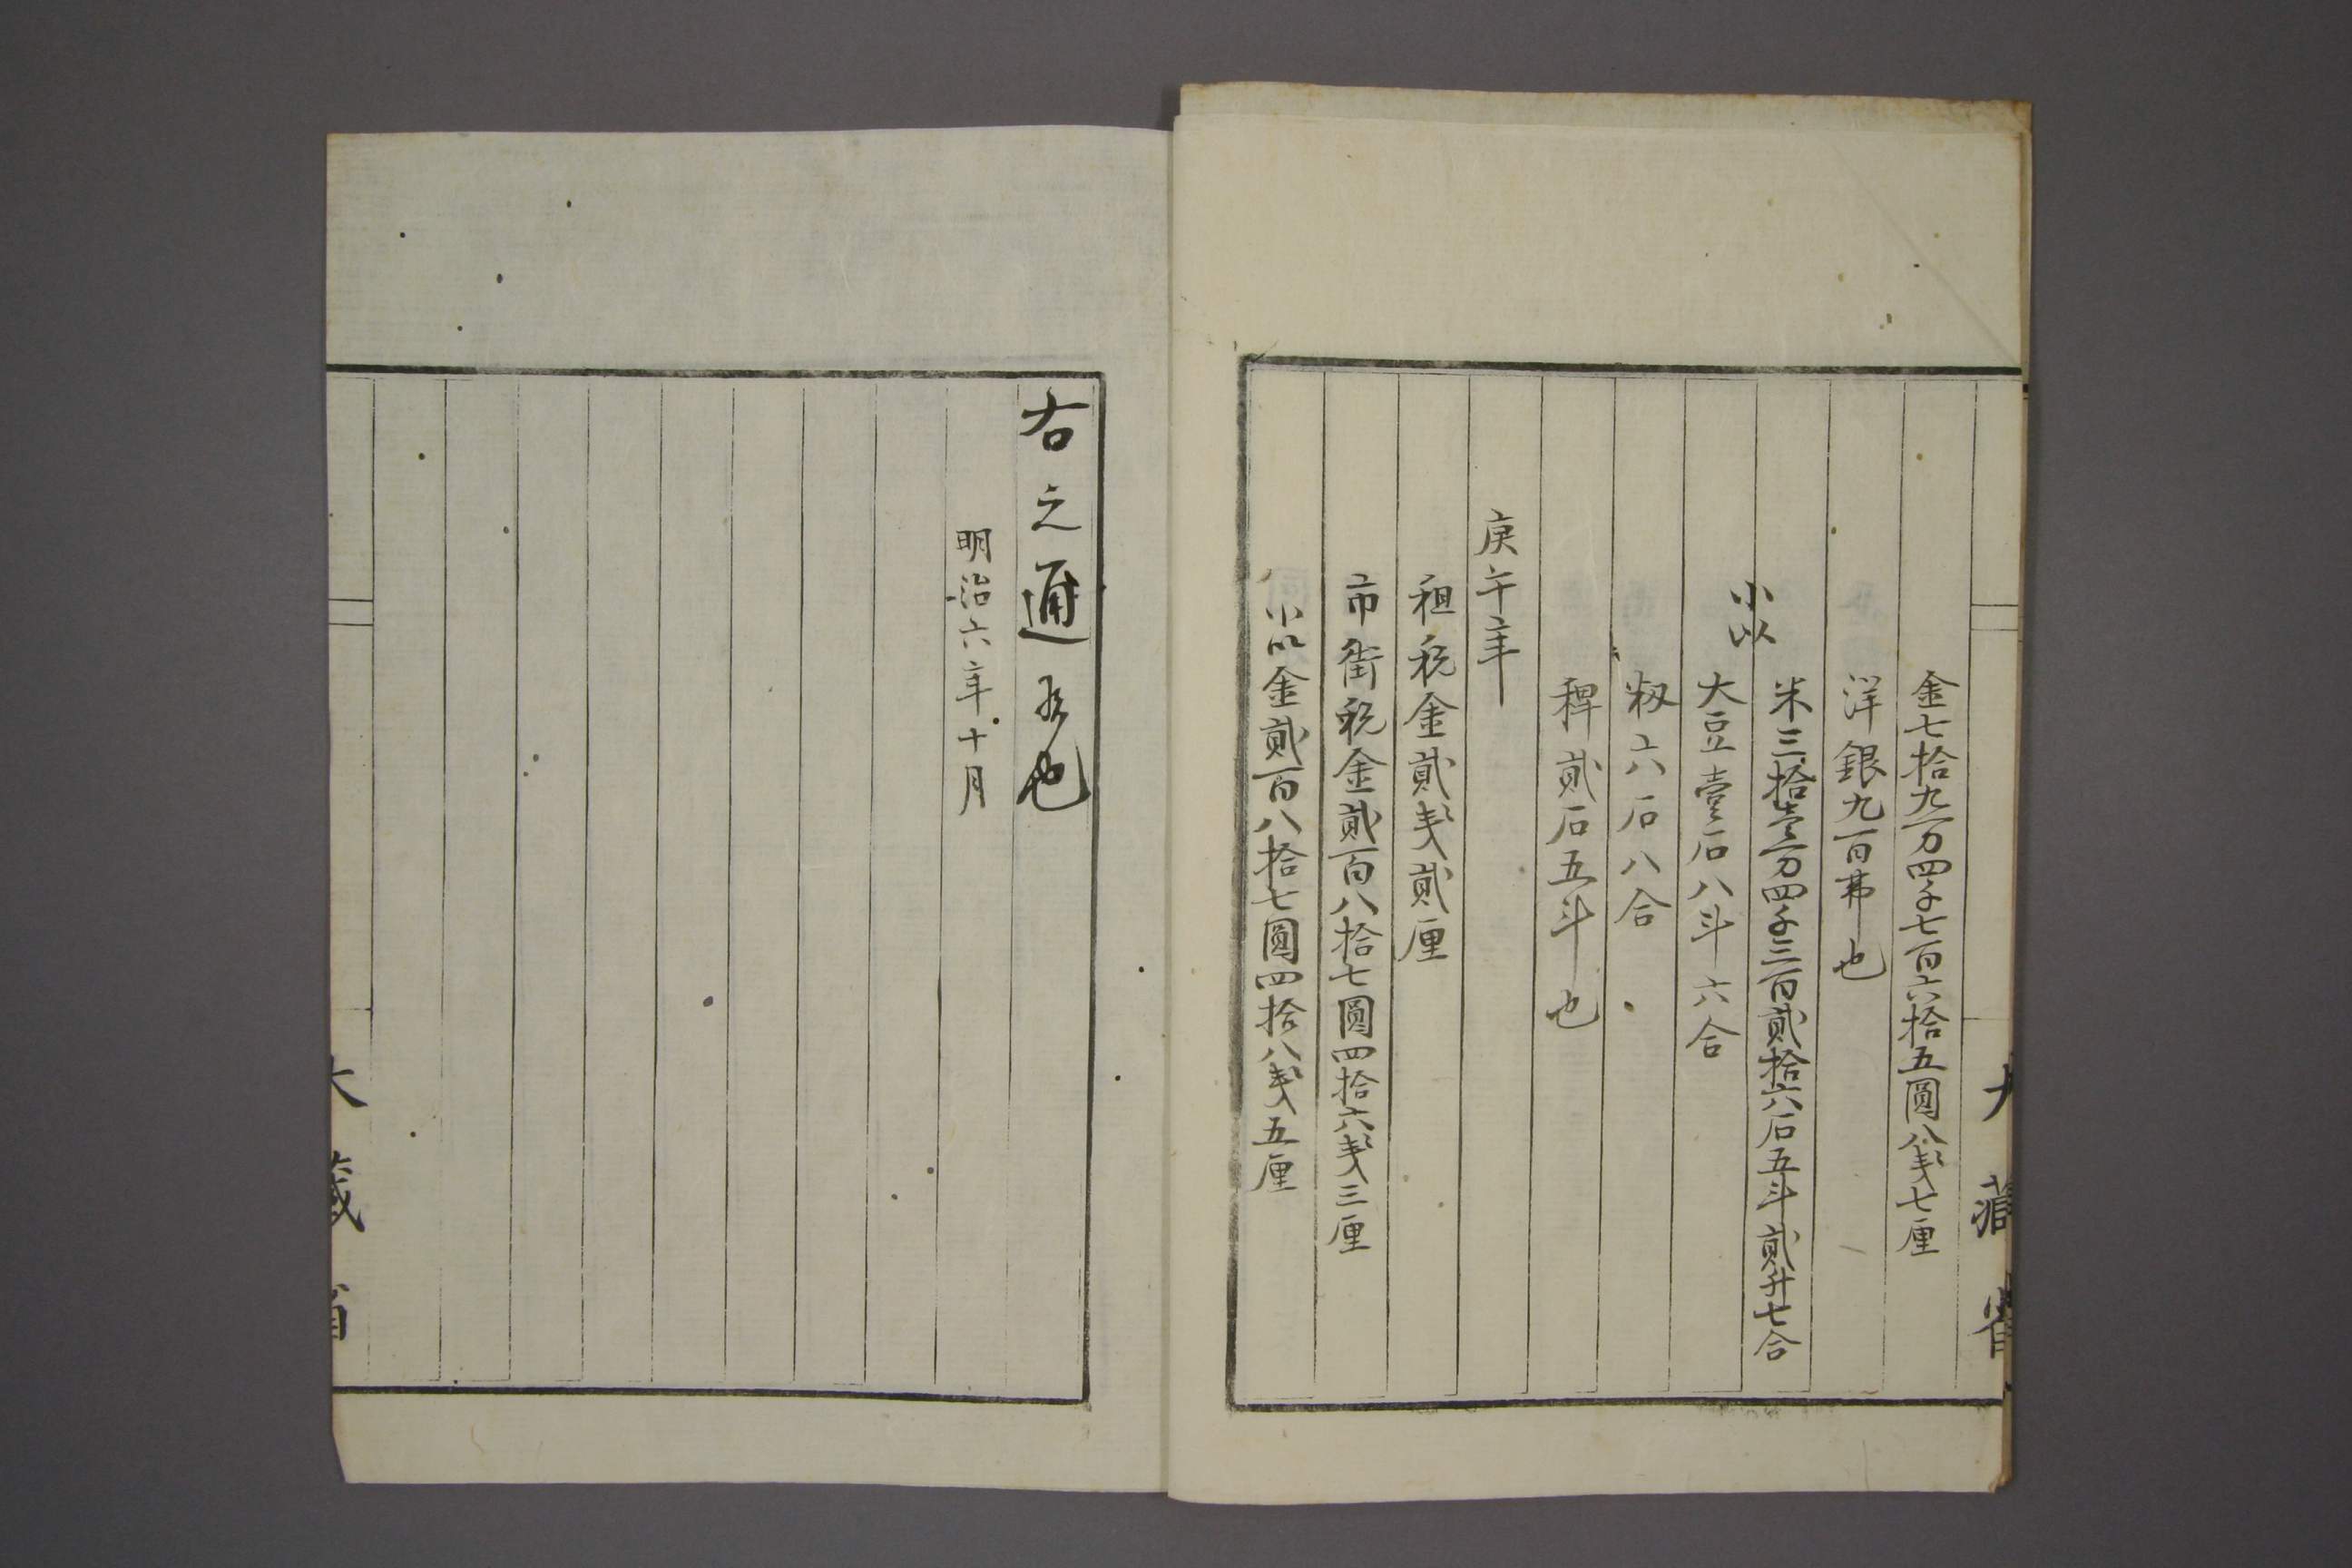 大蔵省
金七拾九万四千七百六拾五圓八銭七厘
洋銀九百弗也
小以
米三拾壹万四千三百貳拾六石五斗貳升七合
大豆壹石八斗六合
籾六石八合
稗貳石五斗也
庚午年
租税金貳銭貳厘
市街税金貳百八拾七圓四拾六銭三厘
小以金貳百八拾七圓四拾八銭五厘
右之通ニ候也
明治六年十月
大蔵省